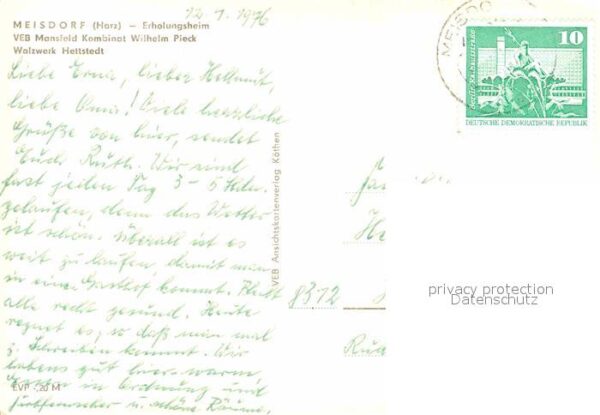 12.1.1976
MEISDORF (Harz) — Erholungsheim
VEB Mansfeld Kombinat Wilhelm Pieck
Walzwerk Hettstedt
Liebe Erni, lieber Hellmut,
liebe Omi! Viele herzliche
Grüße von hier, sendet
Euch Ruth. Wir sind
fast jeden Tag 3-5 Stdn.
gelaufen, denn das Wetter
ist schön. Überall ist es
weit zu laufen, damit man
in eine Gasthof kommt.
alle recht gesund. Heute
regnet es, so daß man mal
z. Schreiben kommt. Wir
habens gut hier, warm
in Ordnung und
u. schöne Räume.
EVP -,20 M
VEB Ansichtskartenverlag Köthen
MEISDO
10
DEUTSCHE DEMOKRATISCHE REPUBLIK
8312
privacy protection
Datenschutz